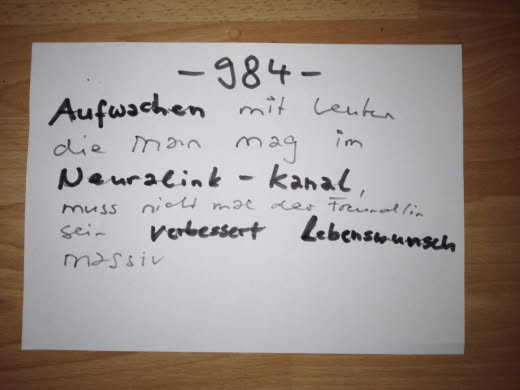 - 984 -
Aufwachen mit Leuten
die man mag im
Neuralink - Kanal,
muss nicht mal der Freund/in
sein verbessert Lebenswunsch
massiv